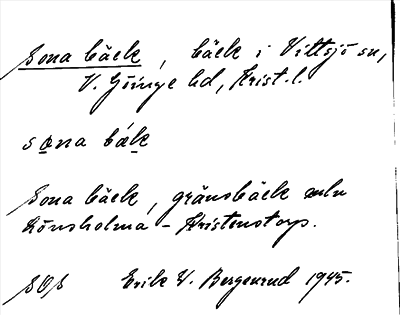 Sona bäck, bäck i Vittsjö sn,
V. Göinge hd, Krist. l.
sona bäk
Sona bäck, gränsbäck mln
Lönsholma - Kristenstorp.
SOS Erik V. Bergenrud 1945.